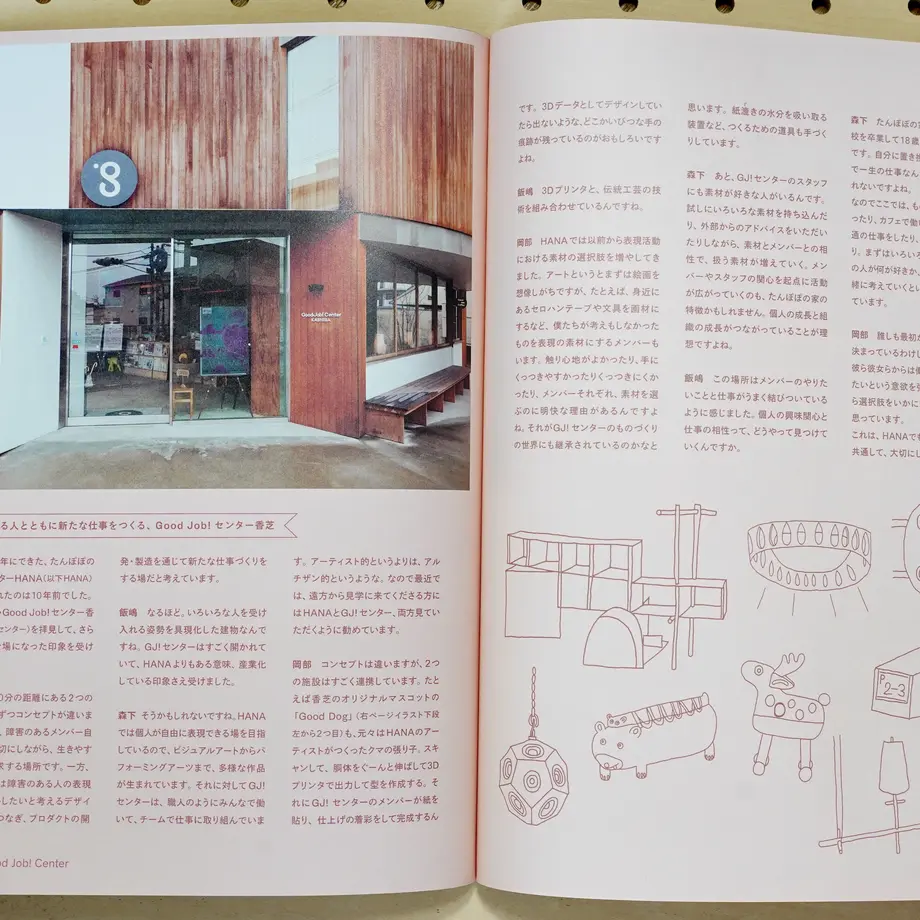 8.
Good Job! Center
KASHIBA
る人とともに新たな仕事をつくる、Good Job! センター香芝
年にできた、たんぽぽの
ターHANA(以下HANA)
れたのは10年前でした。
Good Job! センター香
センター)を拝見して、さら
場になった印象を受け
0分の距離にある2つの
ずつコンセプトが違いま
、障害のあるメンバー自
切にしながら、生きやす
求する場所です。一方、
は障害のある人の表現
したいと考えるデザイ
つなぎ、プロダクトの開
発・製造を通じて新たな仕事づくりを
する場だと考えています。
飯嶋 なるほど。いろいろな人を受け
入れる姿勢を具現化した建物なんで
すね。GJ! センターはすごく開かれて
いて、HANAよりもある意味、産業化
している印象さえ受けました。
森下 そうかもしれないですね。HANA
では個人が自由に表現できる場を目指
しているので、ビジュアルアートからパ
フォーミングアーツまで、多様な作品
が生まれています。それに対してGJ!
センターは、職人のようにみんなで働
いて、チームで仕事に取り組んでいま
す。アーティスト的というよりは、アル
チザン的というような。なので最近で
は、遠方から見学に来てくださる方に
はHANAとGJ! センター、両方見てい
ただくように勧めています。
岡部 コンセプトは違いますが、2つ
の施設はすごく連携しています。たと
えば香芝のオリジナルマスコットの
「Good Dog」(右ページイラスト下段
左から2つ目)も、元々はHANAのアー
ティストがつくったクマの張り子。スキ
ャンして、胴体をぐーんと伸ばして3D
プリンタで出力して型を作成する。そ
れにGJ! センターのメンバーが紙を
貼り、仕上げの着彩をして完成するん
od Job! Center
です。3Dデータとしてデザインしてい
たら出ないような、どこかいびつな手の
痕跡が残っているのがおもしろいです
よね。
飯嶋 3Dプリンタと、伝統工芸の技
術を組み合わせているんですね。
岡部 HANAでは以前から表現活動
における素材の選択肢を増やしてき
ました。アートというとまずは絵画を
想像しがちですが、たとえば、身近に
あるセロハンテープや文具を画材に
するなど、僕たちが考えもしなかった
ものを表現の素材にするメンバーも
います。触り心地がよかったり、手に
くっつきやすかったりくっつきにくか
ったり、メンバーそれぞれ、素材を選
ぶのに明快な理由があるんですよ
ね。それがGJ! センターのものづくり
の世界にも継承されているのかなと
思います。紙漉きの水分を吸い取る
装置など、つくるための道具も手づく
りしています。
森下 あと、GJ! センターのスタッフ
にも素材が好きな人がいるんです。
試しにいろいろな素材を持ち込んだ
り、外部からのアドバイスをいただい
たりしながら、素材とメンバーとの相
性で、扱う素材が増えていく。メン
バーやスタッフの関心を起点に活動
が広がっていくのも、たんぽぽの家の
特徴かもしれません。個人の成長と組
織の成長がつながっていることが理
想ですよね。
飯嶋 この場所はメンバーのやりた
いことと仕事がうまく結びついている
ように感じました。個人の興味関心と
仕事の相性って、どうやって見つけて
いくんですか。
森下 たんぽぽの
校を卒業して18歳
です。自分に置き換
で一生の仕事なん
れないですよね。
なのでここでは、も
ったり、カフェで働
造の仕事をしたり、
り。まずはいろい
の人が何が好きか、
緒に考えていくとい
ています。
岡部 誰しも最初か
決まっているわけし
彼ら彼女らからは働
たいという意欲を強
ら選択肢をいかに
思っています。
これは、HANAで
共通して、大切にし
P
2-3